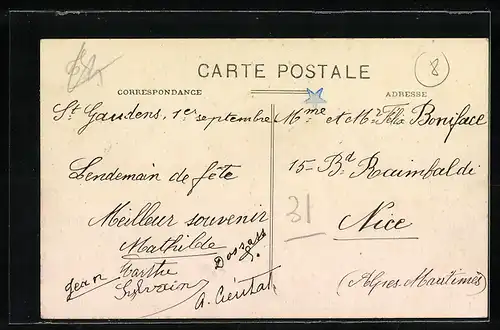 8
CARTE POSTALE
CORRESPONDANCE
ADRESSE
St Gaudens, 1er septembre
Lendemain de fête
Meilleur souvenir
Mathilde
Jean Marthe
Sylvain
A.
Mme et Mr Félix Boniface
15 - Bd Raimbaldi
31
Nice
(Alpes-Maritimes)